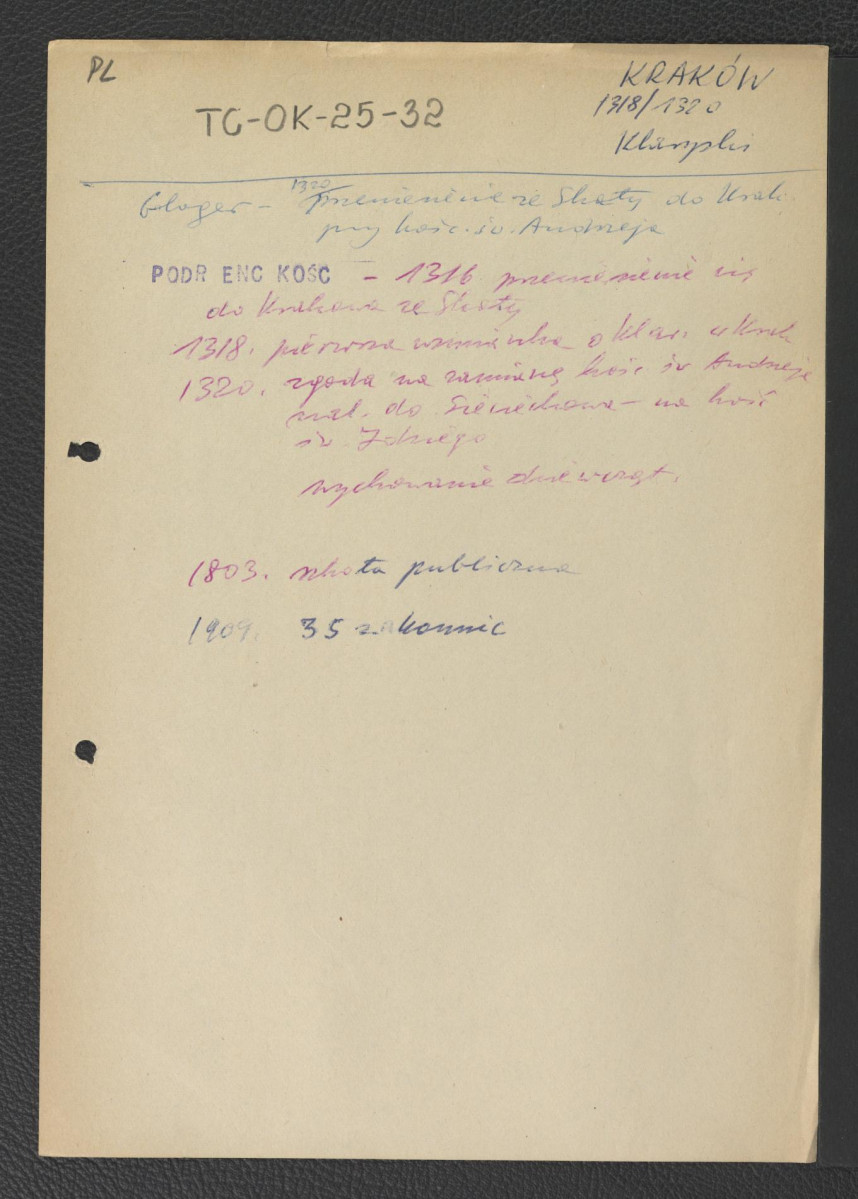 PL
KRAKÓW
1318/1320
TC-OK-25-32
Klaryski
1320
Gloger - przeniesienie ze Skały do Krak.
przy kośc. św. Andrzeja
PODR ENC KOŚC - 1316 przeniesienie się
do Krakowa ze Skały
1318. pierwsza wzmianka o klar. w Krak
1320. zgoda na zamianę kośc. św Andrzeja
nal. do Sieciechowa - na kość
św. Idziego
wychowanie dziewcząt.
1803. szkoła publiczna
1909. 35 zakonnic